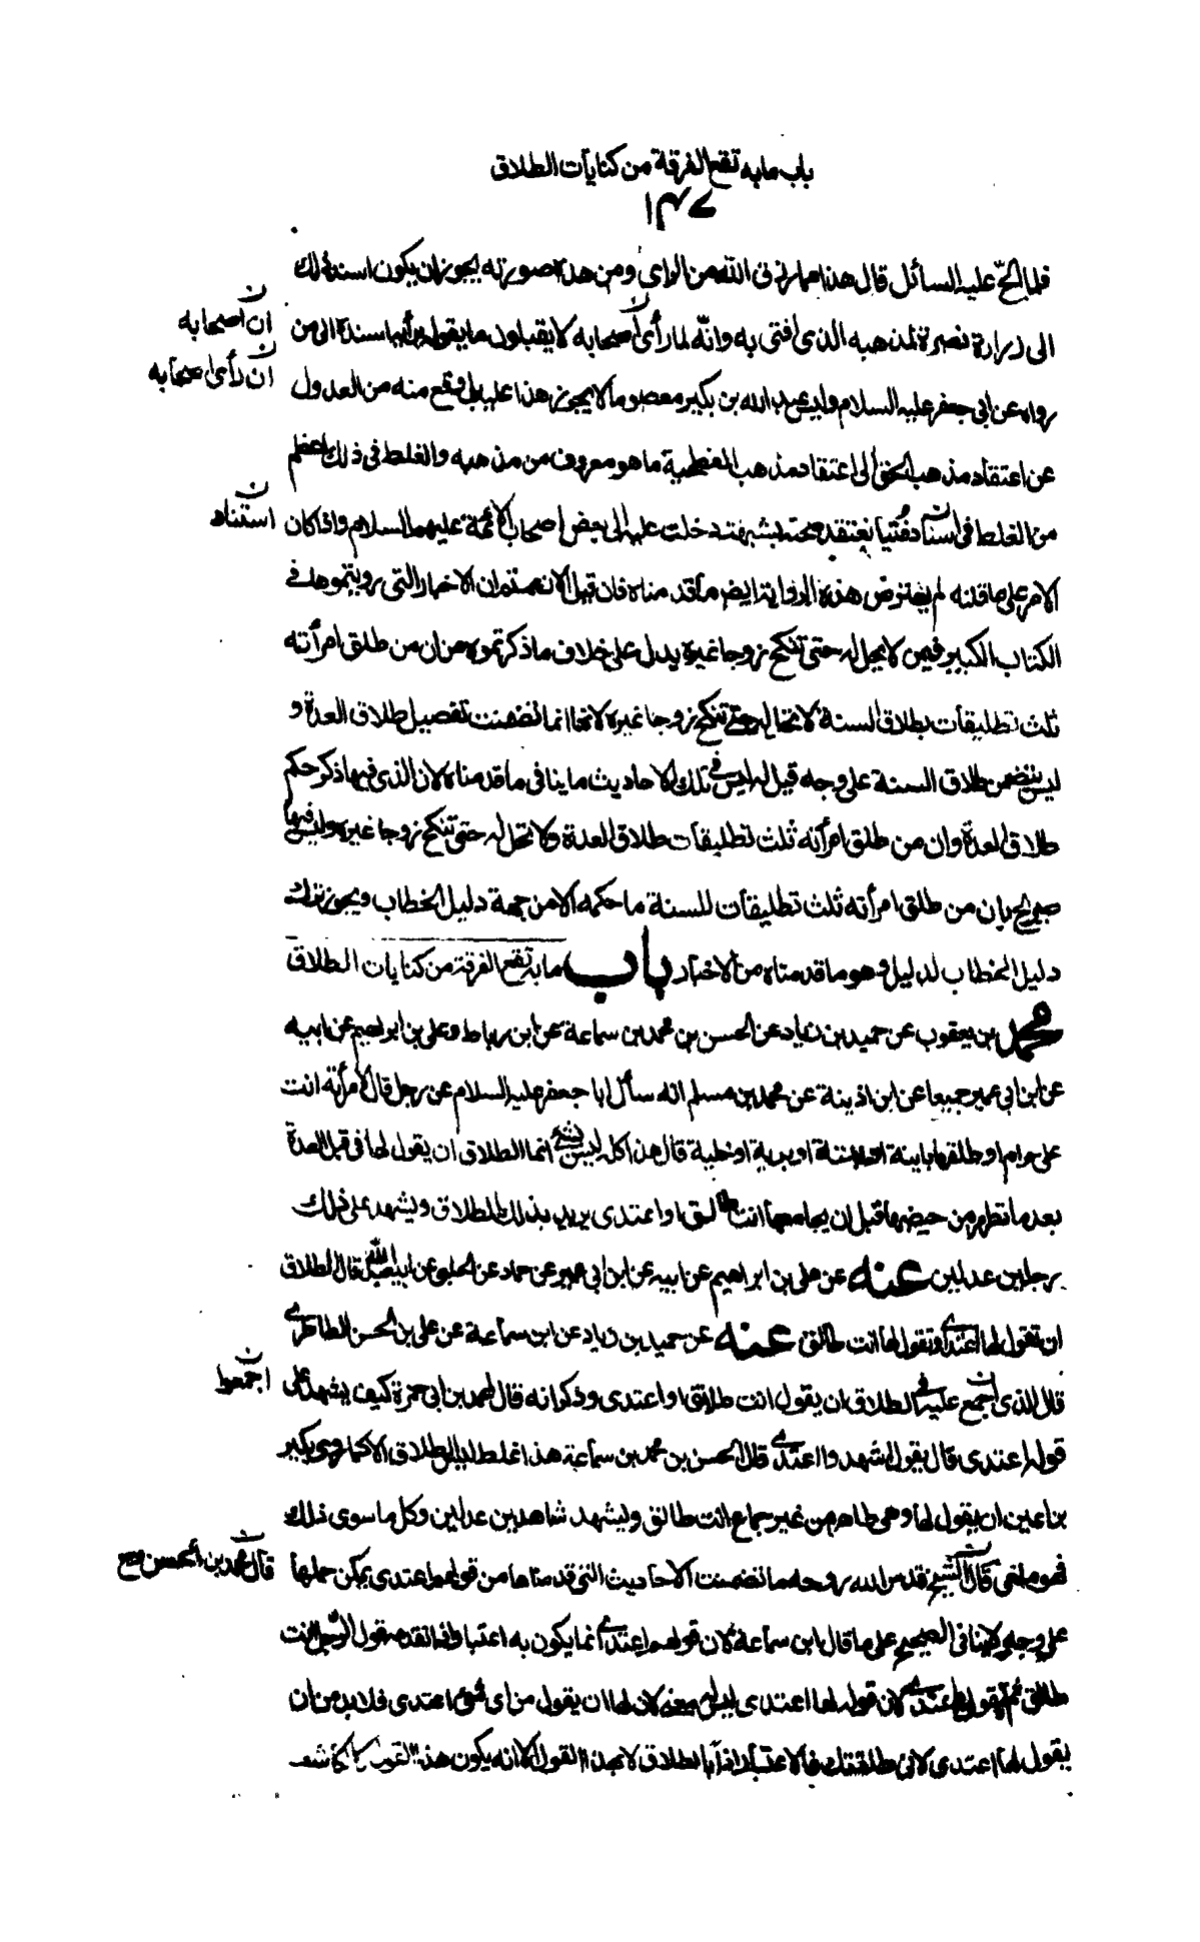 باب ما به تقع الفرقة من كنايات الطلاق
١٤٧
فلما الحّ عليه السائل قال هذا مما رزق الله من الراى ومن هذه صورته يجوز ان يكون اسند ذلك
الى زرارة نصرة لمذهبه الذى افتى به وانّه لما رأى اصحابه لا يقبلون ما يقوله برأيه اسنده الى من
ان اصحابه
رواه عن ابى جعفر عليه السلام وليس عبد الله بن بكير معصوما لا يجوز هذا عليه بل وقع منه من العدول
ان رأى اصحابه
عن اعتقاد مذهب الحق الى اعتقاد مذهب الفطحية ما هو معروف من مذهبه والغلط فى ذلك اعظم
من الغلط فى اسناد فُتيا يعتقد صحته لشبهة دخلت عليه الى بعض اصحاب الائمة عليهم السلام واذا كان
استناد
الامر على ما قلناه لم يعترض هذه الرواية ايضا ما قدمناه فان قيل الا زعمتم ان الاخبار التى رويتموها فى
الكتاب الكبير فيمن لا يحل له حتى تنكح زوجا غيره يدل على خلاف ما ذكرتموه من ان من طلق امرأته
ثلث تطليقات بطلاق السنة لا تحل له حتى تنكح زوجا غيره لانها انما تضمنت تفصيل طلاق العدة و
ليس يتضمن طلاق السنة على وجه قيل له ليس فى تلك الاحاديث ما ينافى ما قدمناه لان الذى فيها ذكر حكم
طلاق العدة وان من طلق امرأته ثلث تطليقات طلاق العدة لا تحل له حتى تنكح زوجا غيره وليس فيها
صريح بان من طلق امرأته ثلث تطليقات للسنة ما حكمه الا من جهة دليل الخطاب ويجوز ترك
دليل الخطاب لدليل وهو ما قدمناه من الاخبار باب ما به تقع الفرقة من كنايات الطلاق
محمد بن يعقوب عن حميد بن زياد عن الحسن بن محمد بن سماعة عن ابن رباط وعلى بن ابراهيم عن ابيه
عن ابن ابى عمير جميعا عن ابن اذينة عن محمد بن مسلم انه سأل ابا جعفر عليه السلام عن رجل قال لامرأته انت
على حرام او طلقها باينة او بتة او برية او خلية قال هذا كله ليس بشئ انما الطلاق ان يقول لها فى قبل العدة
بعد ما تطهر من حيضها قبل ان يجامعها انت طالق او اعتدى يريد بذلك الطلاق ويشهد على ذلك
رجلين عدلين عنه عن على بن ابراهيم عن ابيه عن ابن ابى عمير عن حماد عن الحلبى عن ابيعبد الله قال الطلاق
ان تقول لها اعتدى او تقول لها انت طالق عنه عن حميد بن زياد عن ابن سماعة عن على بن الحسن الطاطرى
قال الذى اجمع عليه فى الطلاق ان يقول انت طالق او اعتدى وذكر انه قال لمحمد بن ابى حمزة كيف يشهد على
اجمعوا
قوله اعتدى قال يقول اشهدوا اعتدى قال الحسن بن محمد بن سماعة هذا غلط ليس الطلاق الا كما روى بكير
بن اعين ان يقول لها وهى طاهر من غير جماع انت طالق وليشهد شاهدين عدلين وكل ما سوى ذلك
فهو ملغى قال الشيخ قدس الله روحه ما تضمنت الاحاديث التى قدمناها من قولهم اعتدى يمكن حملها
قال محمد بن الحسن
على وجه لا ينافى الصحيح على ما قال ابن سماعة لان قولهم اعتدى انما يكون به اعتبار اذا تقدمه قول الرجل انت
طالق ثم يقول اعتدى لان قوله لها اعتدى ليس له معنى لان لها ان يقول من اى شئ اعتدى فلا بد من ان
يقول لها اعتدى لانى طلقتك فالاعتبار اذا بالطلاق لا بهذا القول الا انه يكون هذا القول كالكاشف